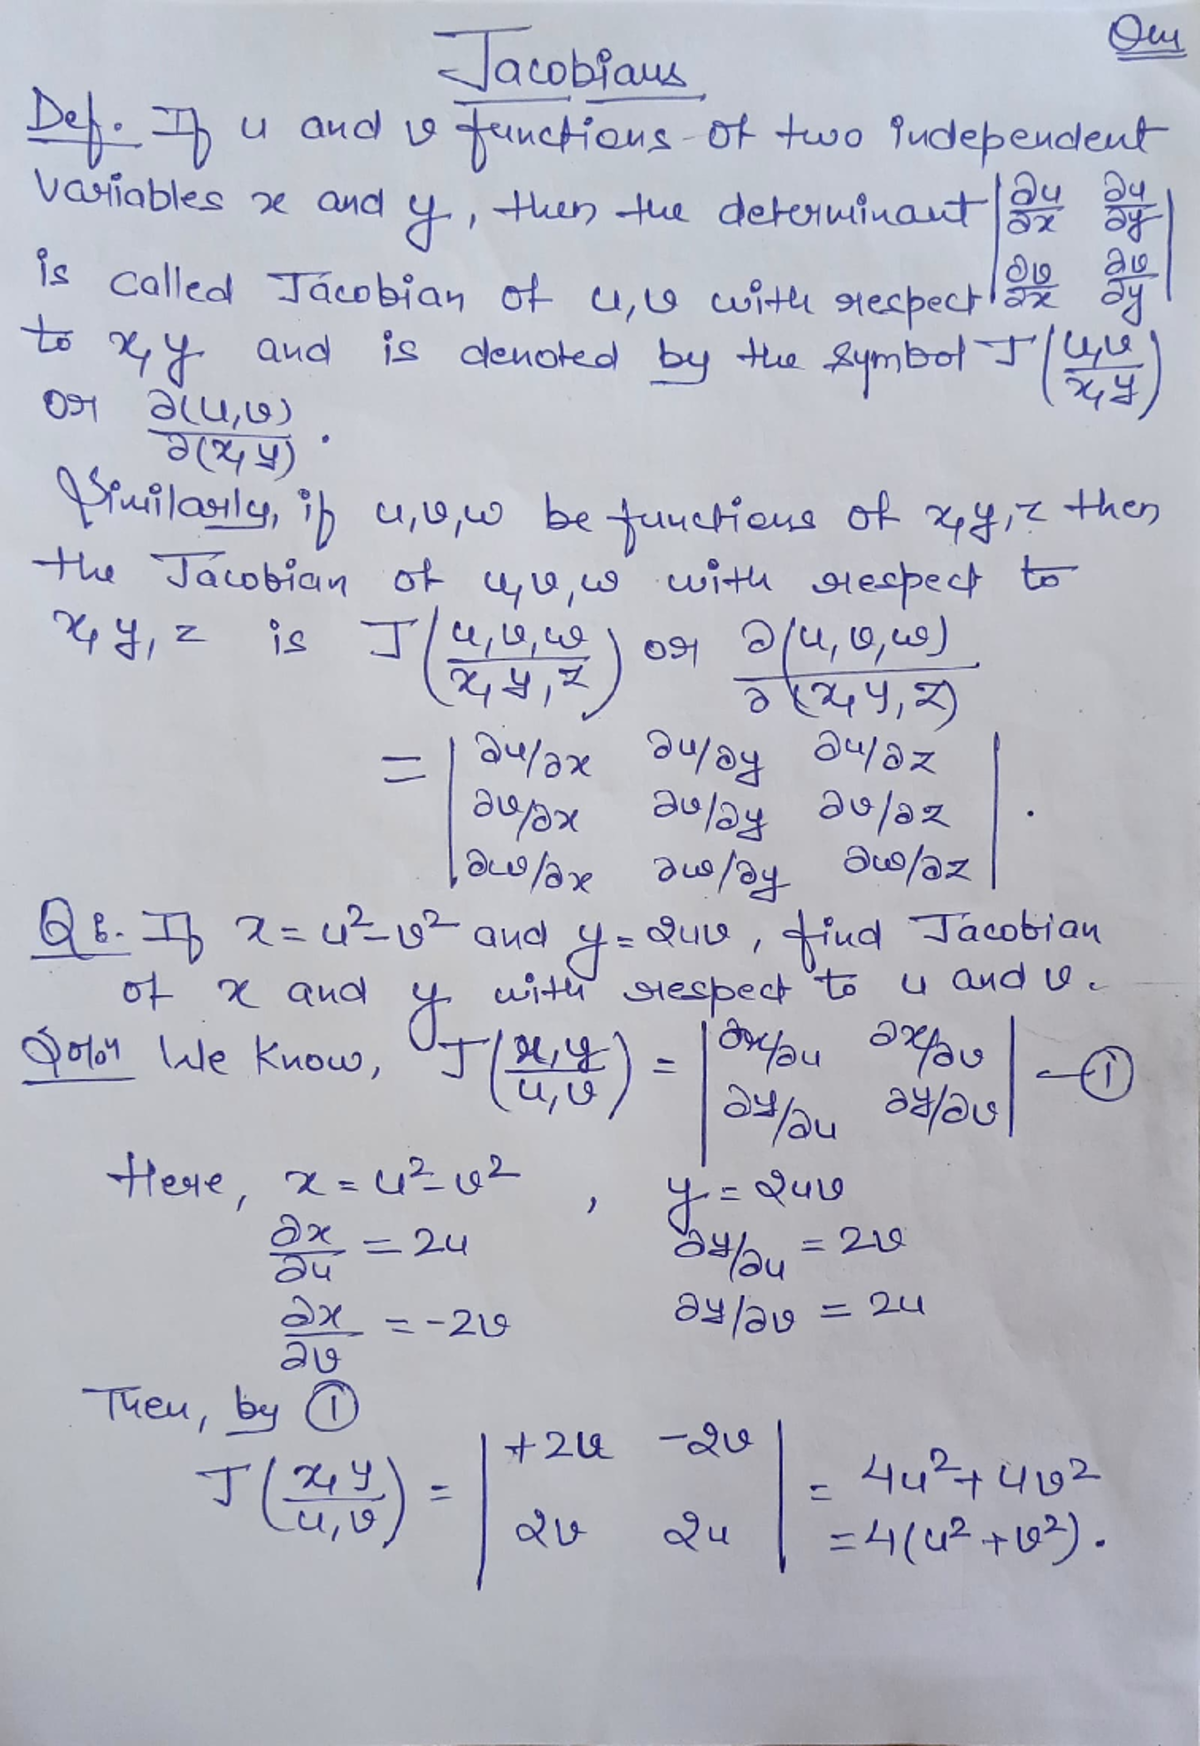 Om
Jacobians
Def. If u and v functions of two independent
variables x and y, then the determinant | ∂u/∂x ∂u/∂y |
| ∂v/∂x ∂v/∂y |
is called Jacobian of u,v with respect
to x,y and is denoted by the symbol J(u,v / x,y)
or ∂(u,v)/∂(x,y).
Similarly, if u,v,w be functions of x,y,z then
the Jacobian of u,v,w with respect to
x,y,z is J(u,v,w / x,y,z) or ∂(u,v,w)/∂(x,y,z)
= | ∂u/∂x ∂u/∂y ∂u/∂z |
| ∂v/∂x ∂v/∂y ∂v/∂z | .
| ∂w/∂x ∂w/∂y ∂w/∂z |
Q1. If x = u²-v² and y = 2uv, find Jacobian
of x and y with respect to u and v.
Solⁿ We know, J(x,y / u,v) = | ∂x/∂u ∂x/∂v | — ①
| ∂y/∂u ∂y/∂v |
Here, x = u²-v² , y = 2uv
∂x/∂u = 2u ∂y/∂u = 2v
∂x/∂v = -2v ∂y/∂v = 2u
Then, by ①
J(x,y / u,v) = | +2u -2v | = 4u²+4v²
| 2v 2u | = 4(u²+v²).